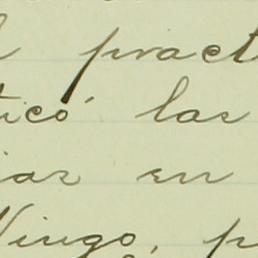 pract
ticó las
ias en
Ningo, p